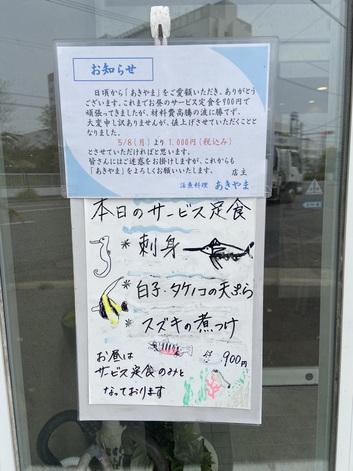 お知らせ
日頃から「あきやま」をご愛顧いただき、ありがとう
ございます。これまでお昼のサービス定食を900円で
頑張ってきましたが、材料費高騰の波に勝てず、
大変申し訳ありませんが、値上げさせていただくことと
なりました。
5/8(月)より1,000円(税込み)
とさせていただければと思います。
皆さんにはご迷惑をお掛けしますが、これからも
「あきやま」をよろしくお願いいたします。
店主
活魚料理 あきやま
本日のサービス定食
* 刺身
* 白子・タケノコの天ぷら
* スズキの煮つけ
900円
お昼は
サービス定食のみと
なっております